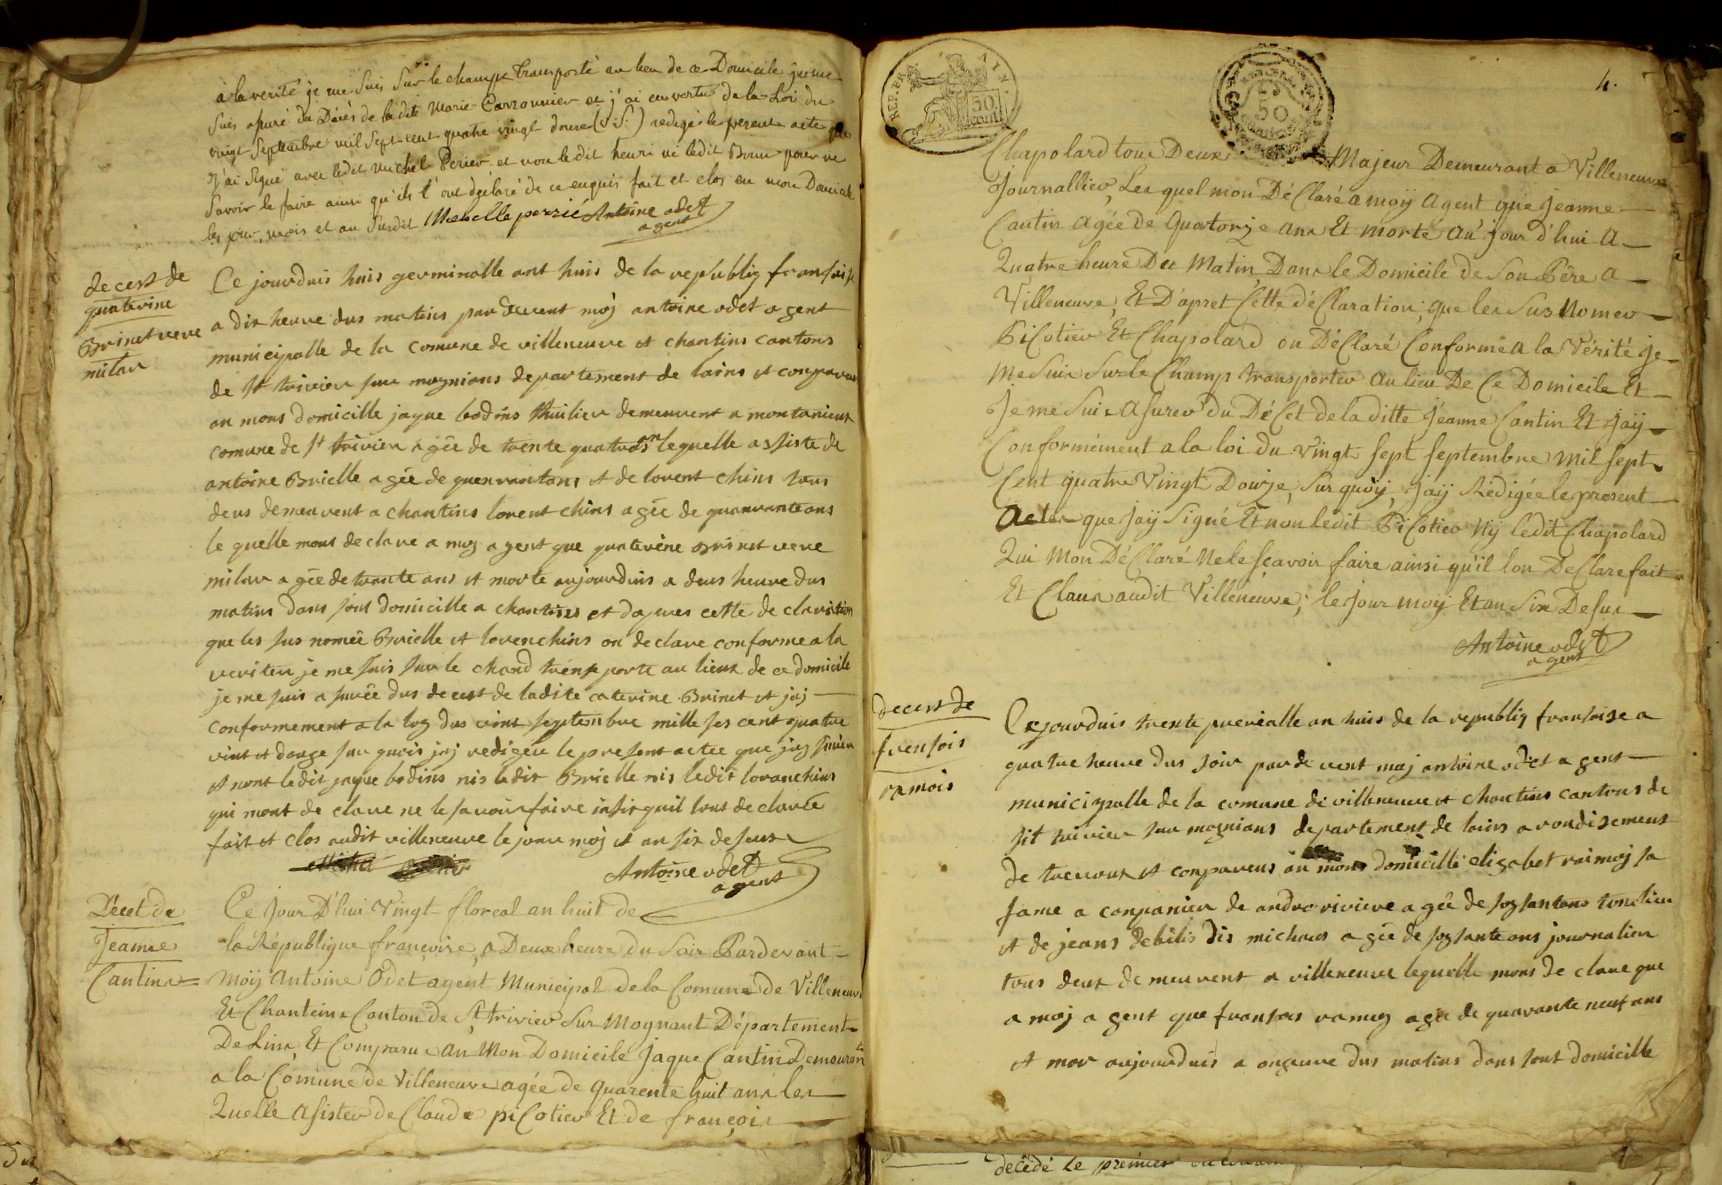 a la verité je me suis sur le champs transporté au lieu de ce Domicile je me
suis assuré du Déces de ladite Marie Carronnier et j'ai en vertu de la Loi du
vingt Septembre mil Sept cent quatre vingt douze (v.s.) redigé le present acte que
j'ai Signé avec ledit Michel Perier et non le dit henri ni ledit Brun pour ne
Savoir le faire ainsi qu'ils l'ont declaré de ce enquis fait et clos en mon Domicile
les jour, mois et an Susdit Mehelle perrié Antoine odet
agent
decest de
quaterine
Brinet veve
milan
Ce jourduis huis germinalle ant huis de la republiq fransaise
a dix heure dus matins par devent moj antoine odet agent
municipalle de la comune de villeneuve et chantins cantons
de st trivier sur mognians departement de lains et conparus
au mons domicille jaque bodins thuilier demeurent a montanieux
comune de st trivier agée de trente quatre ans lequelle assiste de
antoine Brielle agée de quenrantans et de lorent chins tous
deus demeurent a chantins lorent chins agée de quarante ans
le quelle mont declare a moj agent que quaterène Brinet veve
milan agée de trante ans et morte aujourduis a deus heure dus
matins dans sont domicille a chantins et dapres cette declaration
que les sus nomée Brielle et lorenchins on declare conforme a la
veriter je me suis sur le chand transporte au lieux de ce domicile
je me suis asurée dus decest de ladite caterine Brinet et jaj
conformement a la loy dus vint septembre mille ses cent quatre
vint et douze sur quois jaj redigée le present actee que jaj siniée
et nont ledit jaque bodins nis ledit Brielle nis ledit loranchins
qui mont declare ne le savoir faire insis quil lont declarée
fait et clos audit villeneuve le jour moj et an six desus
Antoine odet
agent
Décet de
Jeanne
Cantin
Ce jour D'hui Vingt floreal an huit de
la République françoise, a Deux heure du Soir Pardevant
Moÿ Antoine Odet agent Municipal de la Comune de Villeneuve
Et Chanteins Canton de St trivier Sur Mognant Département
De Linx Et Comparu au Mon Domicile Jaque Cantin Demeurant
a la Comune de Villeneuve agée de quarente huit ans les
Quelle Asister de Claude piCotier Et de françois
4.
REP. FRA.
50
cent
50
Chapolard tous Deux Majeur Demeurant a Villeneuve
Journallier, Les quel mon DéClaré a moÿ Agent que Jeanne
Cantin Agée de Quatorze ans Et morte Au'jour d'hui A
Quatre heure Des Matin Dans le Domicile de Son Père A
Villeneuve, Et D'apret Cette déClaration, que les Sus Nomer
PiCotier Et Chapolard on DéClaré Conforme A la Vérité Je
Me Suis Sur le Champ transporter Au lieu De Ce Domicile Et
Je me Suis Asurer du DéCet de la ditte Jeanne Cantin Et Jaÿ
Conformement a la loi du Vingt Sept Septembre Mil Sept
Cent quatre Vingt Douze, Sur quoÿ, Jaÿ Rédigée le present
Acte que Jaÿ Signé Et non ledit PiCotier Nÿ ledit Chapolard
Qui Mon DéClaré Ne le Scavoir faire ainsi qu'il lon DeClare fait
Et Claux audit Villeneuve, le Jour Moÿ Et an Six Desus
Antoine odet
agent
decest de
fransois
ramois
Ce jourduis trente preriallle an huis de la republiq fransoise a
quatre heure dus soir par de vent moj antoine odet agent
municipalle de la comune de villeneuve et chantins cantons de
sit trivier sur mognians departement de lains arondisement
de trevoux et conparus au mons domicille elizabet raimoj sa
fame a conpanier de andre riviere agée de soysantans tonelier
et de jeans debilis dis michaus agée de soysante ans journalier
tous deux demeurent a villeneuve lequelle mons declare que
a moj agent que fransois ramoy agée de quarante neuf ans
et mor aujourduis a onzeure dus matins dans sont domicille
decédé Le premier